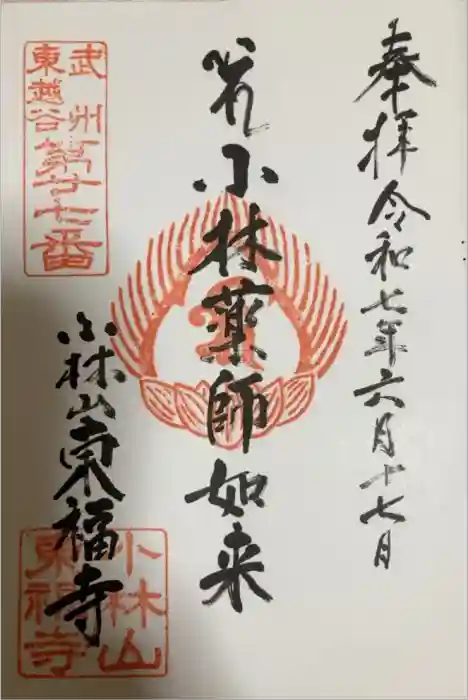 奉拝令和七年六月十七月
小林薬師如来
小林山東福寺
武州
東越谷
第廿七番
小林山
東福寺